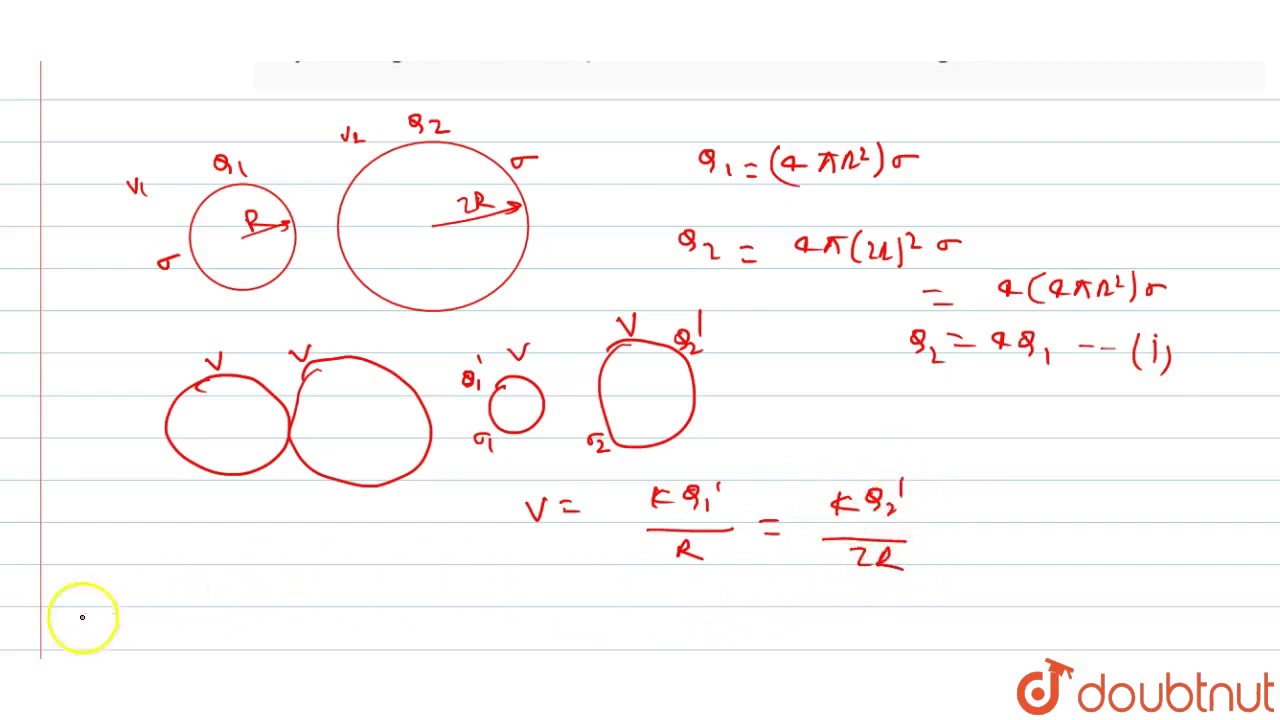 V₁
Q₁
R
σ
V₂
Q₂
σ
2R
Q₁ = (4πR²)σ
Q₂ = 4π(2R)²σ
= 4(4πR²)σ
Q₂ = 4Q₁ -- (i)
V
V
Q₁'
V
σ₁
V
Q₂'
σ₂
V = KQ₁'/R = KQ₂'/2R
doubtnut